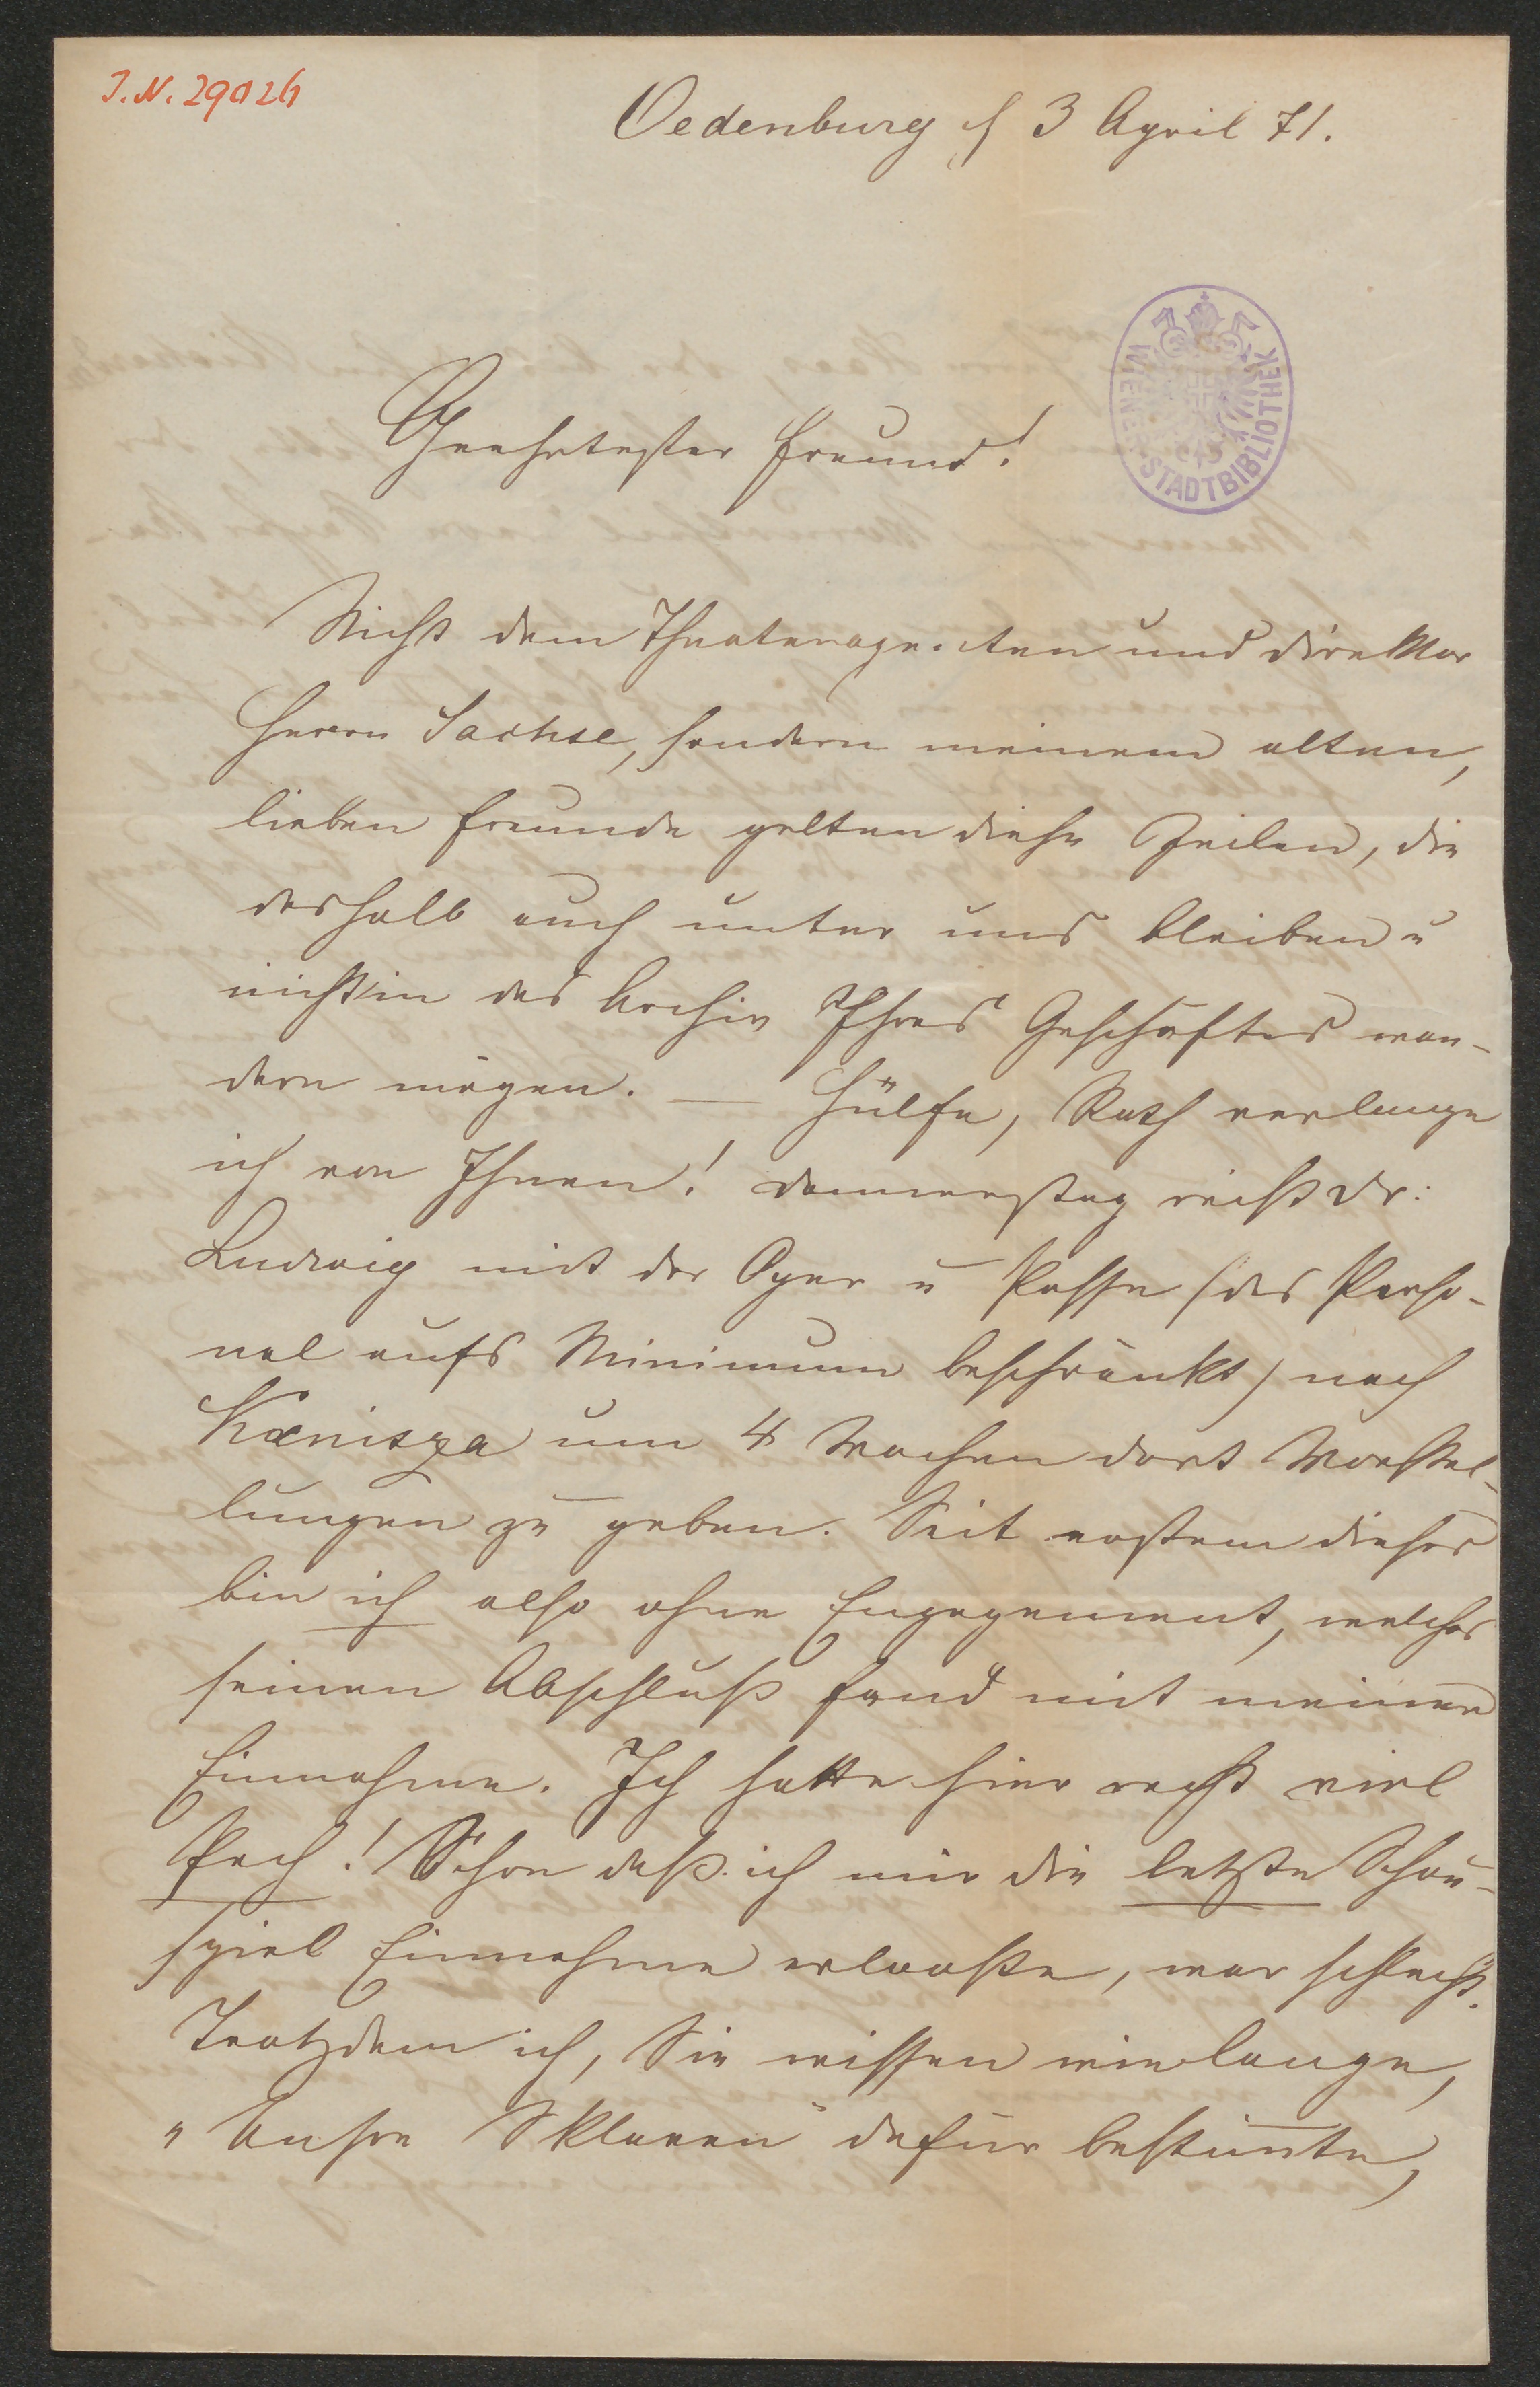 J.N. 29026
Oedenburg d 3 April 71.
WIENER STADTBIBLIOTHEK
Geehrtester Freund!
Nicht dem Theateragenten und Direktor
Herrn Sachse, sondern meinem alten,
lieben Freunde gelten diese Zeilen, die
deshalb auch unter uns bleiben u
nicht in das Archiv Ihres Geschäftes wan-
dern mögen. — Hülfe, Rath verlange
ich von Ihnen! Donnerstag reist Dr:
Ludwig mit der Oper u Posse (das Perso-
nal aufs Minimum beschränkt) nach
Kanisza um 4 Wochen dort Vorstel-
lungen zu geben. Seit erstem dieses
bin ich also ohne Engagement, welches
seinen Abschluß fand mit meiner
Einnahme. Ich hatte hier recht viel
Pech! Schon daß ich mir die letzte Schau-
spiel Einnahme erlooste, war schlecht.
Trotzdem ich, Sie wissen wie lange,
"Unsre Sklaven" dafür bestimmte,